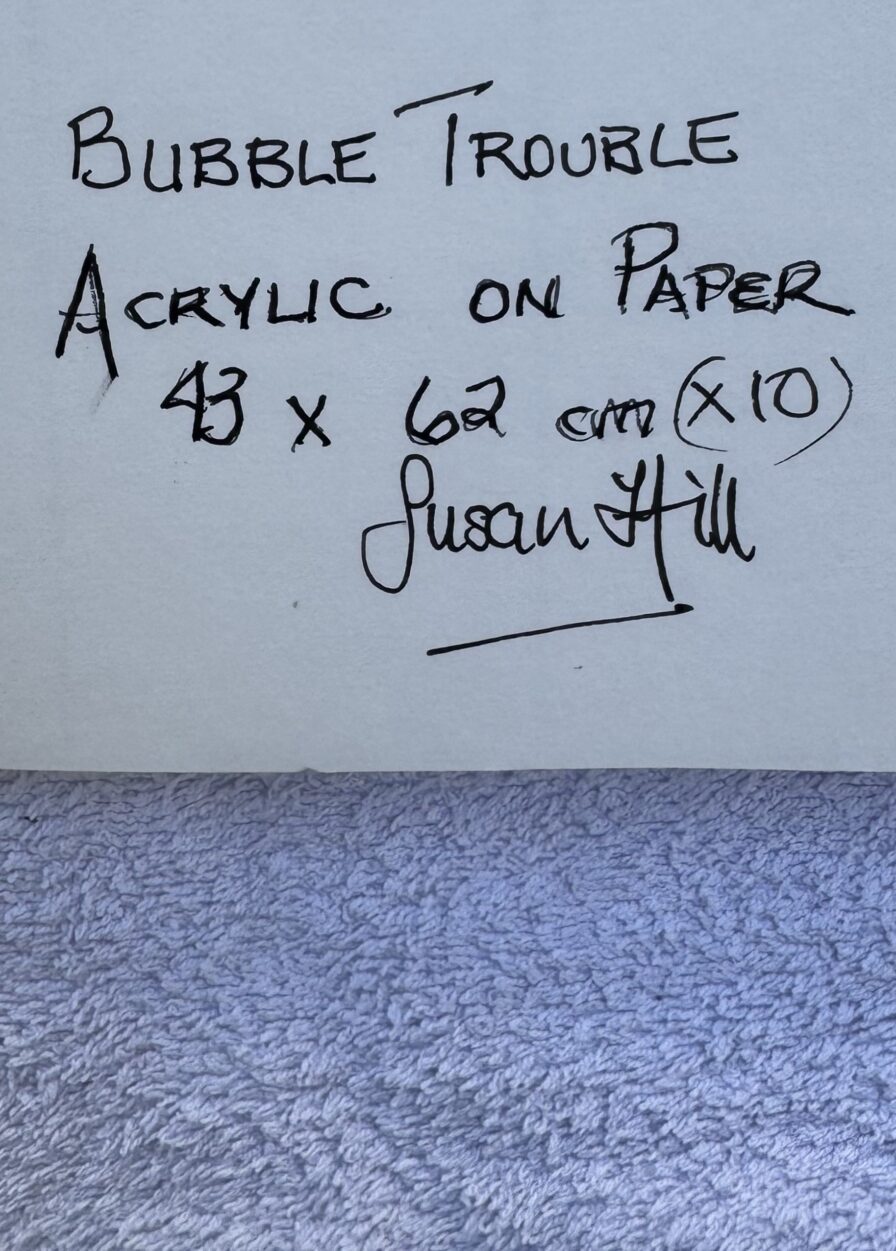 BUBBLE TROUBLE
ACRYLIC ON PAPER
43 x 62 cm (x 10)
Susan Hill